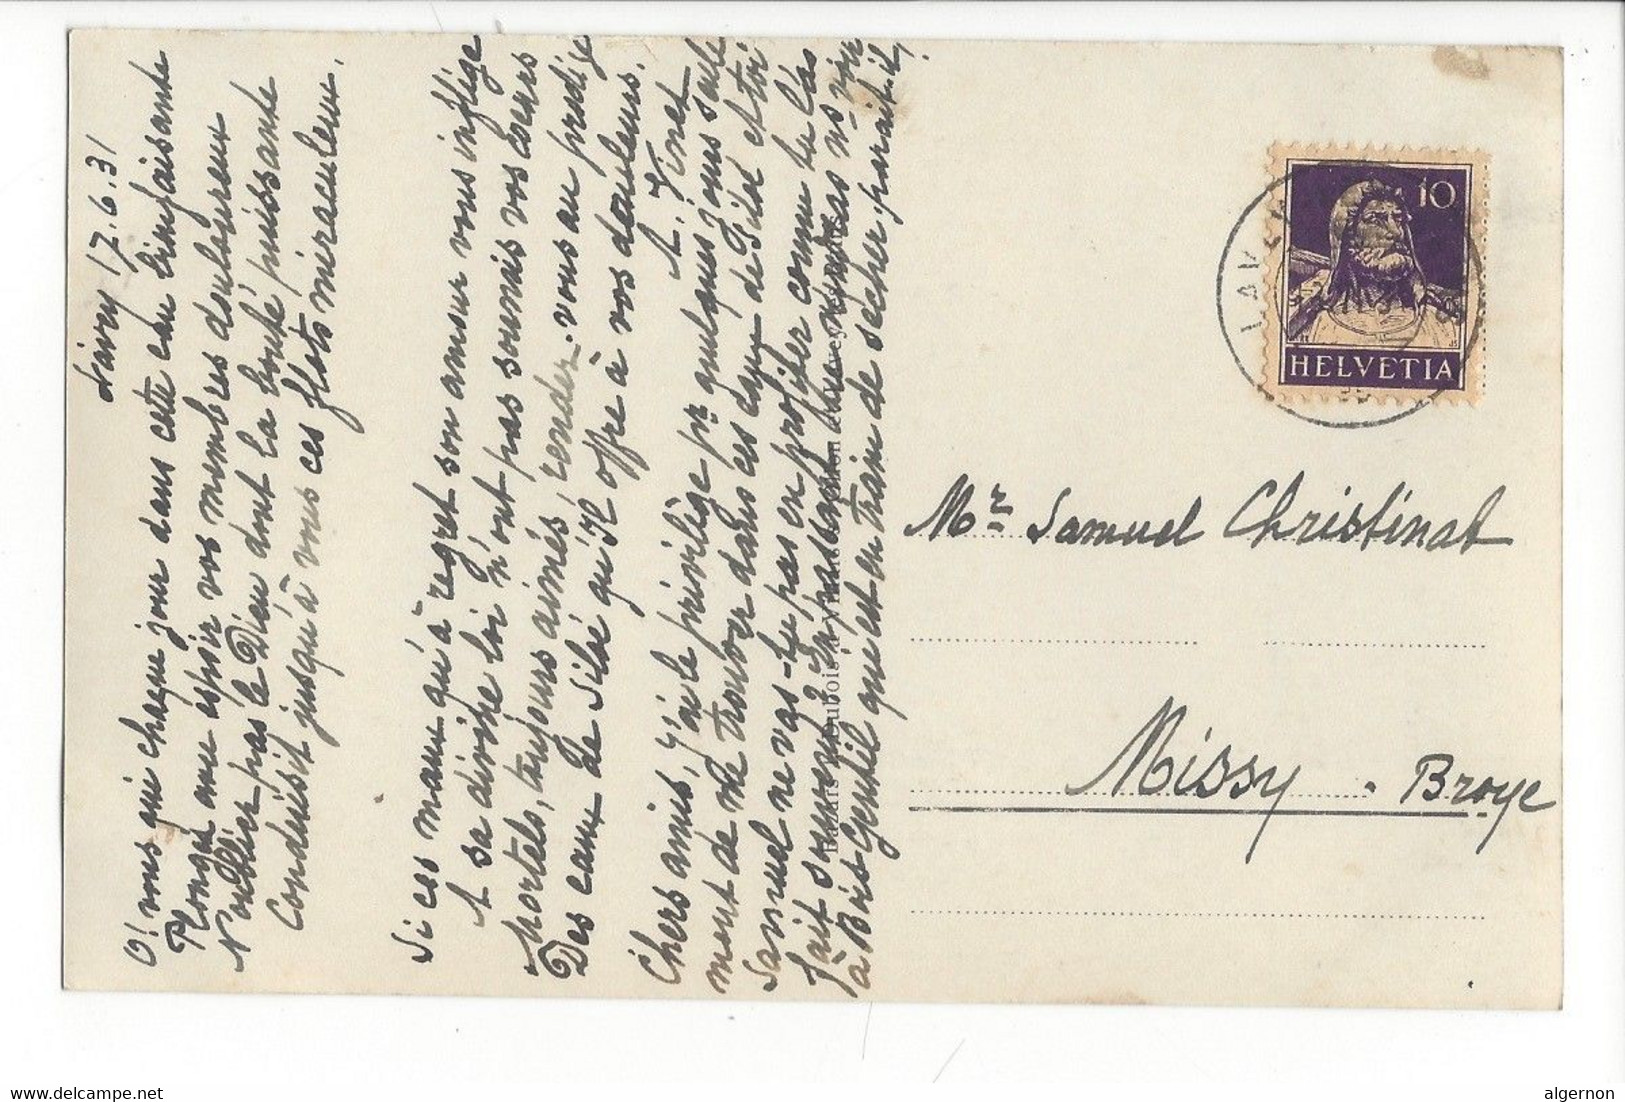 Lavey 17.6.31
O! vous qui chaque jour dans cette eau bienfaisante
Plongez avec espoir vos membres douloureux
N'oubliez pas le Dieu dont la bonté puissante
Conduisit jusqu'à vous ces flots miraculeux.
Si ces maux qu'à regret son amour vous inflige
A sa divine loi n'ont pas soumis vos coeurs
Mortels, toujours aimés, rendez-vous au prodige
Des eaux de Siloé qu'Il offre à vos douleurs.
A. Vinet
Chers amis, j'ai le privilège pr quelques jours seule
ment de me trouver dans ces eaux de Siloé et toi
Samuel ne vas-tu pas en profiter comme tu l'as
fait souvent? En passant
à Bois-Gentil qui est en train de sécher, paraît-il,
HELVETIA
10
Mr Samuel Christinat
Missy. Broye
algernon